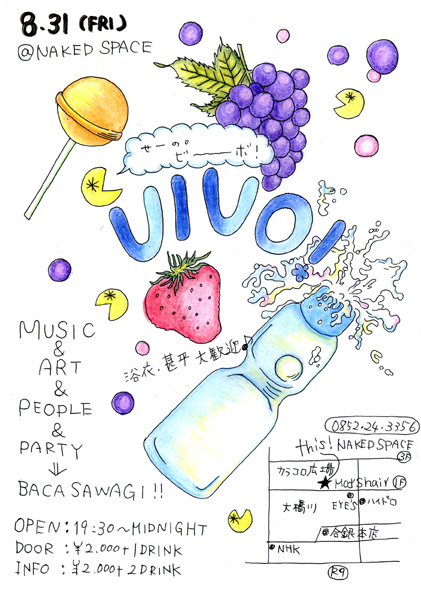 8.31 (FRI)
@NAKED SPACE
せーの。
ビーーボ!
VIVO!
浴衣・甚平大歓迎♪
MUSIC
&
ART
&
PEOPLE
&
PARTY
⇓
BACA SAWAGI!!
OPEN:19:30~MIDNIGHT
DOOR:¥2.000+1DRINK
INFO:¥2.000+2DRINK
0852.24.3356
this! NAKED SPACE
3F
カラコロ広場
★ Mod's hair 1F
大橋川 EYE'S ハイドロ
合銀本店
NHK
R9